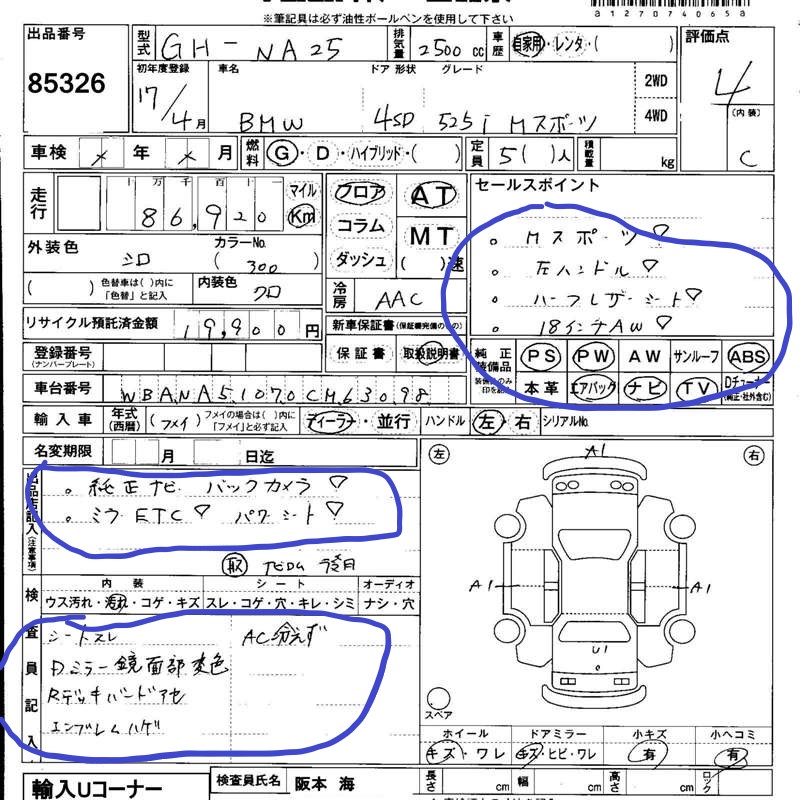 ※筆記具は必ず油性ボールペンを使用して下さい
a12707406 5a
出品番号 型式 GH- NA25 排気量 2500 cc 車歴 自家用・レンタ・( ) 評価点
85326 4
初年度登録 車名 ドア 形状 グレード 2WD (内装)
17/4月 BMW 4SD 525i Mスポーツ 4WD C
車検 × 年 × 月 燃料 G・D・ハイブリッド・( ) 定員 5( )人 積載量 kg
走行 十万千百十 86,920 マイル Km フロア AT セールスポイント
コラム MT 。Mスポーツ♡
外装色 シロ カラーNo. (300) ダッシュ ( )速 。左ハンドル♡
( ) 色替車は( )内に「色替」と記入 内装色 クロ 冷房 AAC 。ハーフレザーシート♡
。18インチAW♡
リサイクル預託済金額 19,900円 新車保証書(保証継承の可能なもの)
登録番号(ナンバープレート) 保証書 取扱説明書 純正装備品 PS PW AW サンルーフ ABS
車台番号 WBANA51070CM63098 本革 エアバック ナビ TV Dチューナー(純正・社外含む)
輸入車 年式(西暦) (フメイ) フメイの場合は( )内に「フメイ」と必ず記入 ディーラー・並行 ハンドル 左・右 シリアルNo.
名変期限 月 日迄
出品店記入(注意事項)
。純正ナビ バックカメラ♡
。ミラーETC♡ パワーシート♡
取 後日
左 右
A1
A1 A1
U1
スペア
検査員記入
内装 シート オーディオ
ウス汚れ・汚れ・コゲ・キズ スレ・コゲ・穴・キレ・シミ ナシ・穴
シートスレ AC効えず
Dミラー鏡面部変色
エンブレムハゲ
ホイール ドアミラー 小キズ 小ヘコミ
キズ・ワレ キズ・ヒビ・ワレ 有 有
輸入Uコーナー 検査員氏名 阪本 海 長さ cm 幅 cm 高さ cm ロック